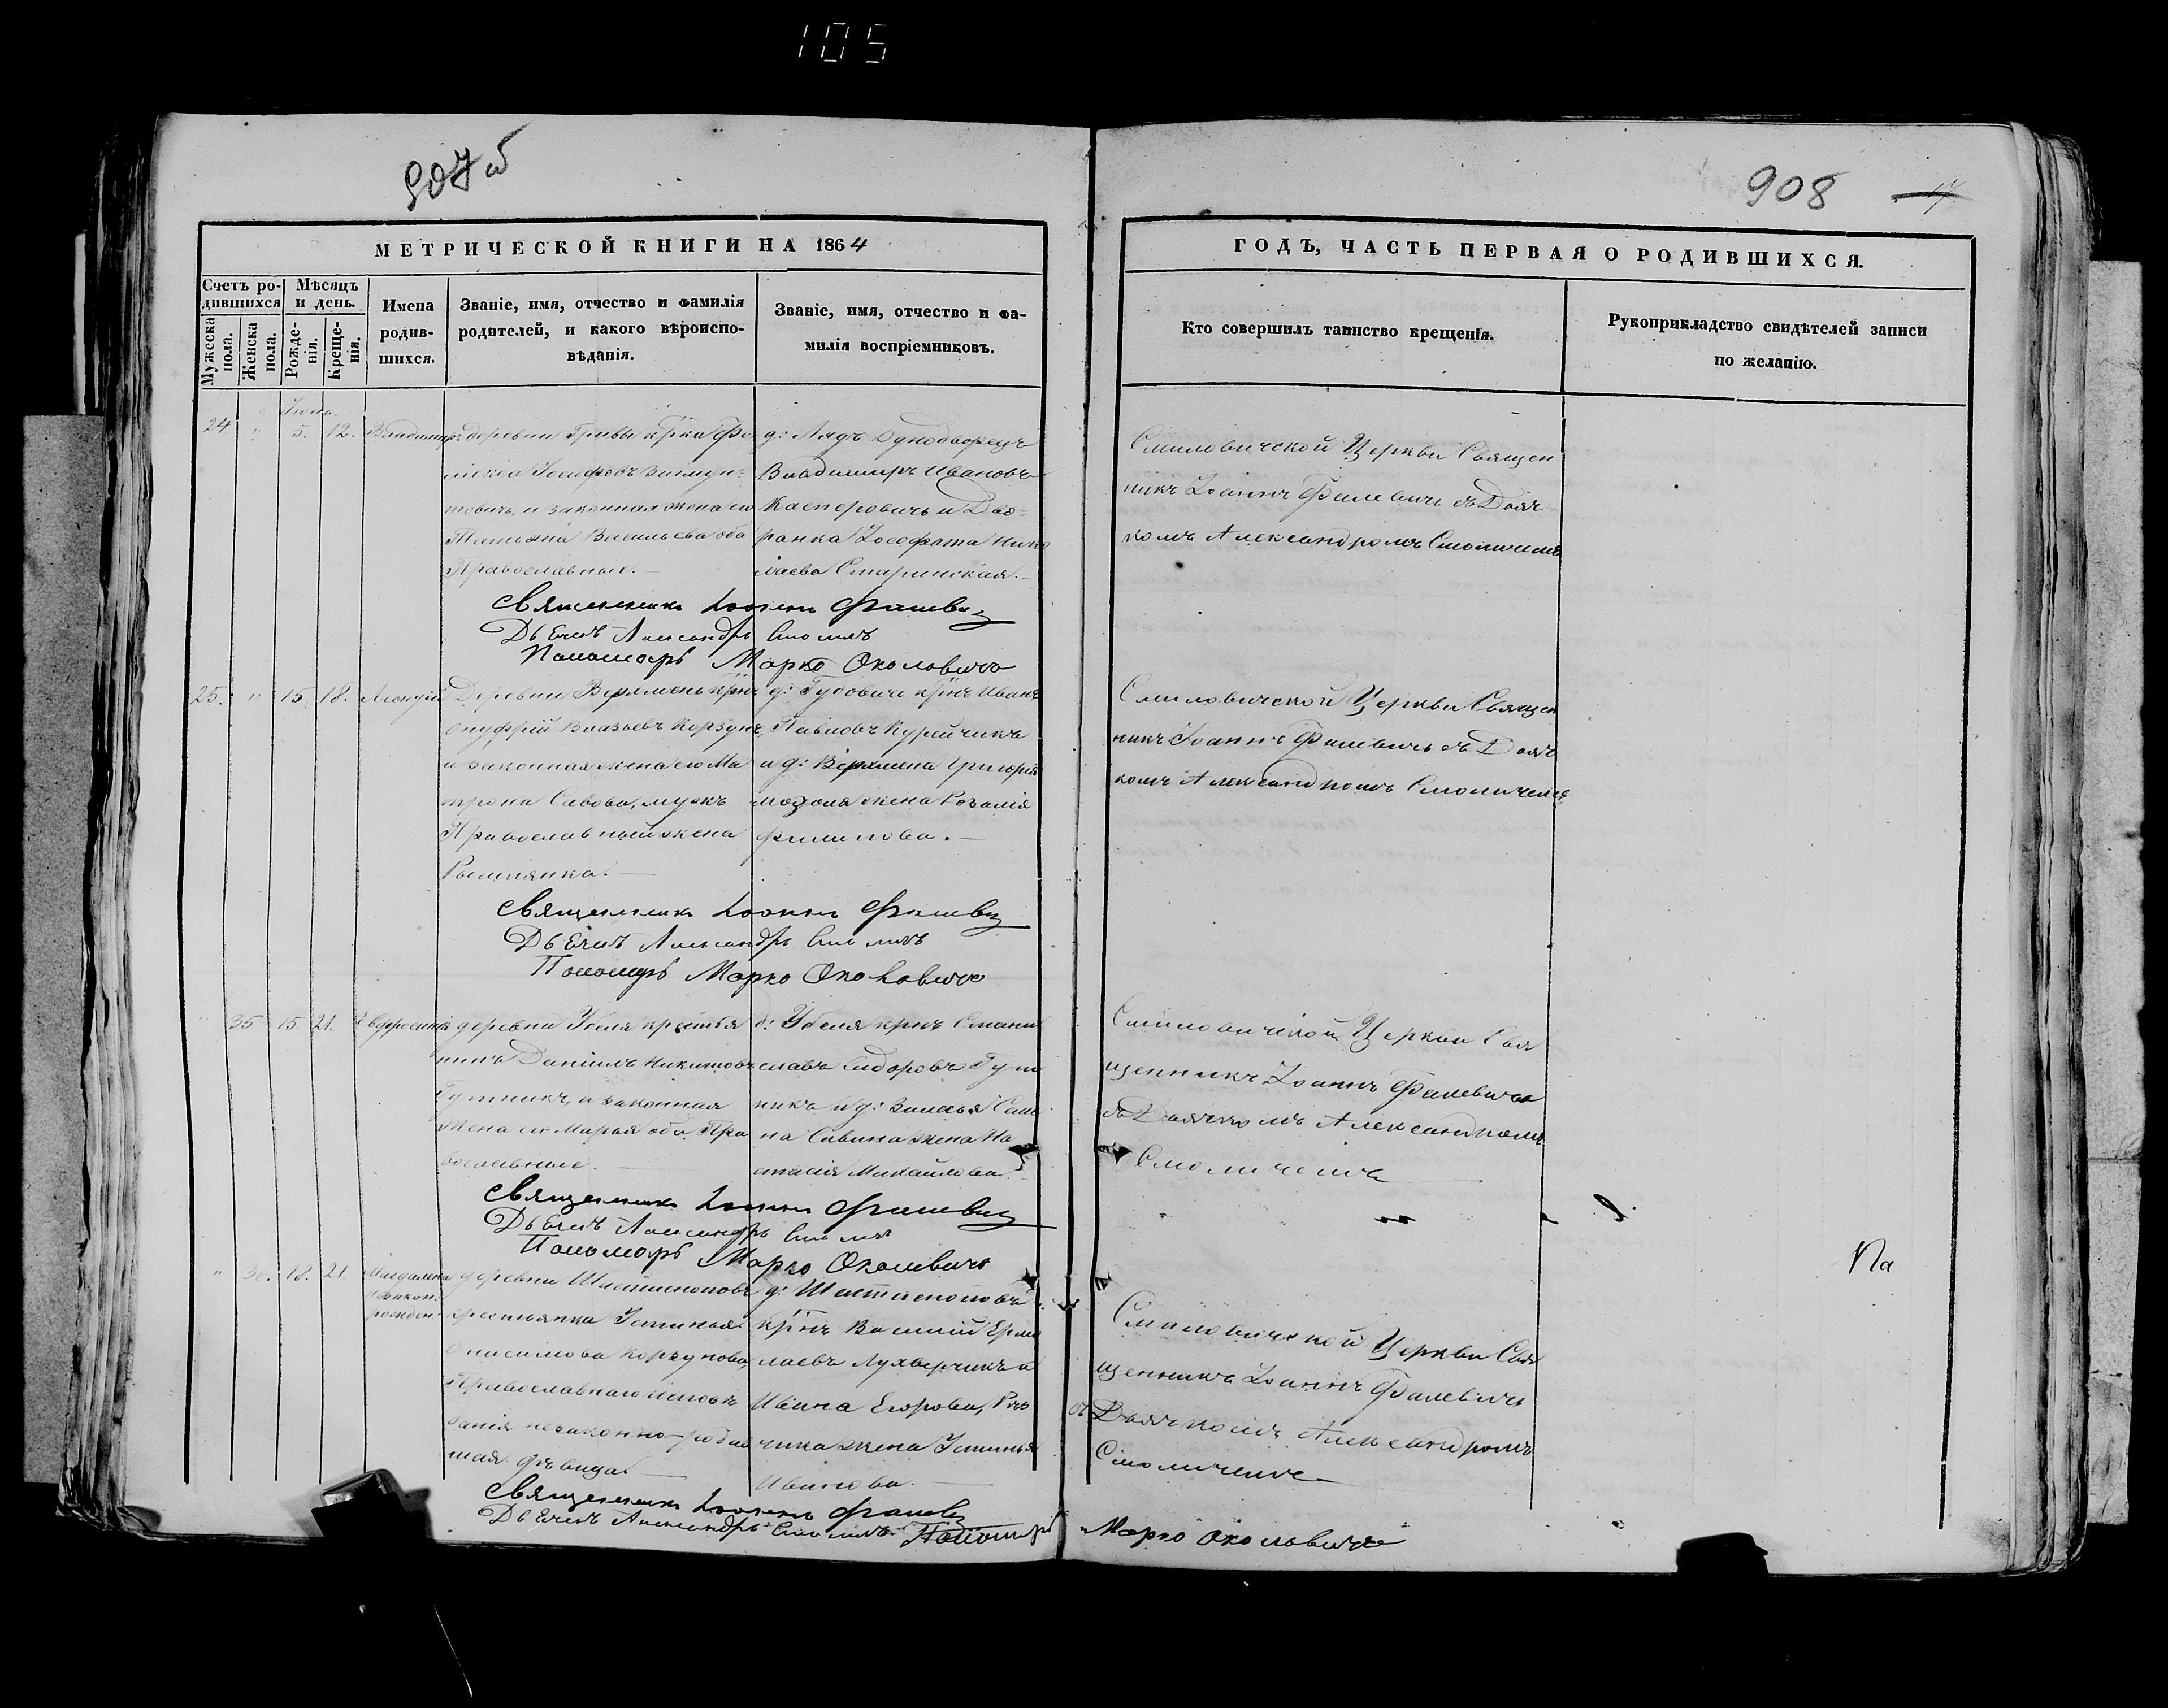 105
907 об
908
17
МЕТРИЧЕСКОЙ КНИГИ НА 1864
ГОДЪ, ЧАСТЬ ПЕРВАЯ О РОДИВШИХСЯ.
Счетъ родившихся
Мужеска пола.
Женска пола.
Мѣсяцъ и день.
Рожденія.
Крещенія.
Имена родившихся.
Званіе, имя, отчество и фамилія
родителей, и какого вѣроиспо-
вѣданія.
Званіе, имя, отчество и фа-
милія воспріемниковъ.
Кто совершилъ таинство крещенія.
Рукоприкладство свидѣтелей записи
по желанію.
24. " 5. 12. Владимиръ
деревни Гривы
законная жена его
Татьяна Васильева оба
Православные.
д: Лядъ Однодворецъ
Владимиръ Ивановъ
Касперовичъ и Дво=
рянка Іосафата Нико
лаева Старинская.
Смиловичской Церкви Священ
никъ Іоаннъ Фалевичъ съ Дьяч
комъ Александромъ Смоличемъ
Священникъ Іоаннъ Фалевичъ
Дьячекъ Александръ Смоличъ
Пономарь Марко Околовичъ
25. " 15. 18.
Онуфрій Власьевъ Корзунъ
и законная жена его Ма
трона Савова, мужъ
Православный жена
Римлянка.
д: Гудовичи крнъ Иванъ
Павловъ Курейчикъ
и д: Веремена Григорія
Мозоля жена Розалія
Филипова.
Смиловичской Церкви Священ
никъ Іоаннъ Фалевичъ съ Дьяч
комъ Александромъ Смоличемъ
Священникъ Іоаннъ Фалевичъ
Дьячекъ Александръ Смоличъ
Пономарь Марко Околовичъ
" 35 15. 21. Евфросинія
деревни Убеля крестья
нинъ Даніилъ Никитовъ
Гутникъ, и законная
жена его Марья оба Пра
вославные.
д: Убеля крнъ Стани
славъ Сидоровъ Гут
никъ и д:
на Савина жена На
стасія Михайлова.
Смиловичской Церкви Свя
щенникъ Іоаннъ Фалевичъ
съ Дьячкомъ Александромъ
Смоличемъ
Священникъ Іоаннъ Фалевичъ
Дьячекъ Александръ Смоличъ
Пономарь Марко Околовичъ
" 36. 18. 21. Магдалена
незакон:
рожден:
деревни
крестьянка Устинья
Онисимова Корзунова
Православнаго исповѣ
данія незаконно-родив
шая дѣвица.
крнъ Василій Ермо
лаевъ Лухверчикъ и
Ивана Егорова
жена Устинья
Иванова.
Смиловичской Церкви Свя
щенникъ Іоаннъ Фалевичъ
съ Дьячкомъ Александромъ
Смоличемъ
Священникъ Іоаннъ Фалевичъ
Дьячекъ Александръ Смоличъ Пономарь Марко Околовичъ